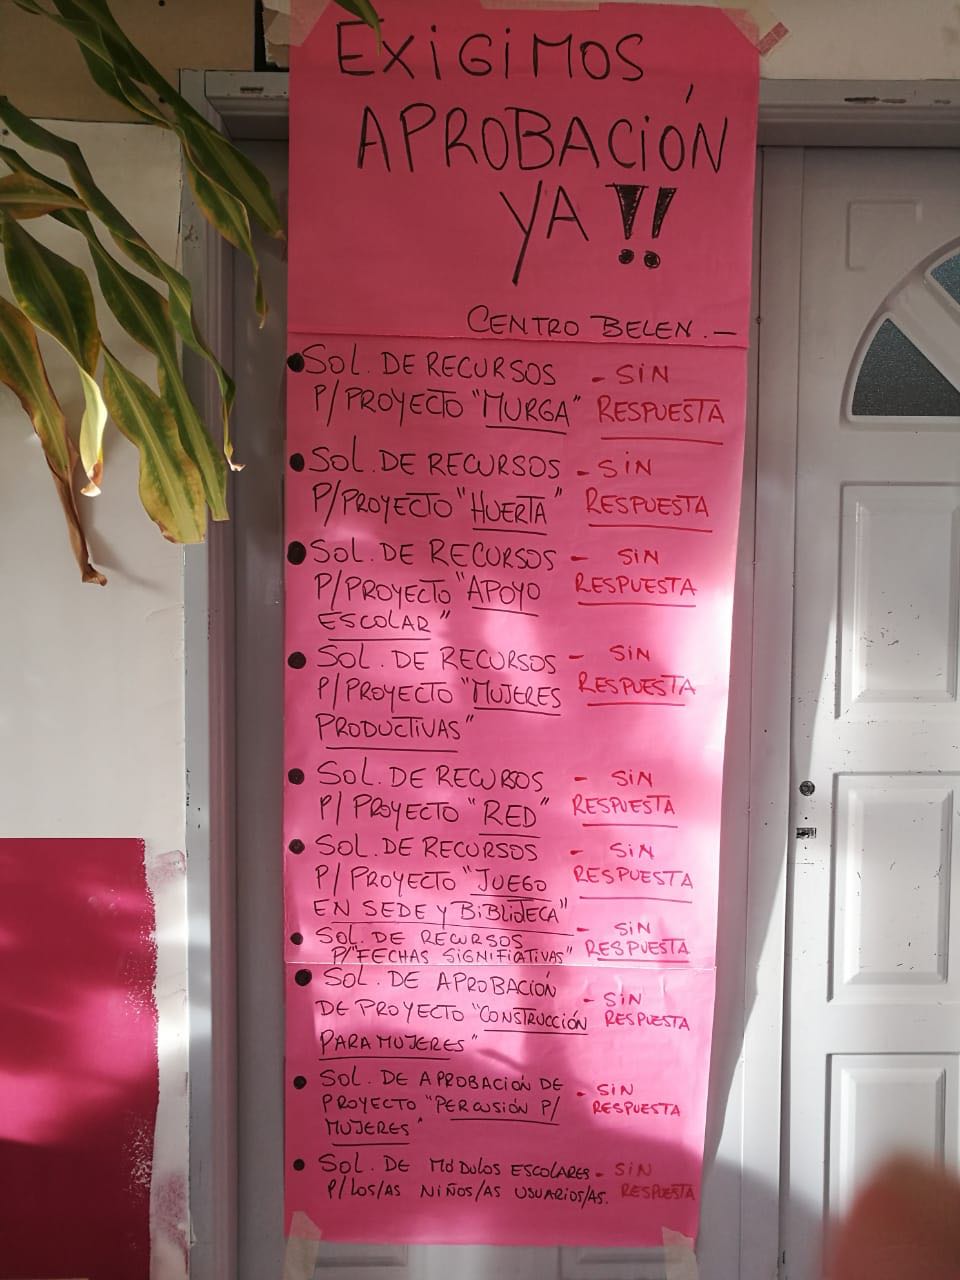 EXIGIMOS
APROBACIÓN
YA!!
CENTRO BELEN.-
• SOL. DE RECURSOS - SIN
P/PROYECTO "MURGA" RESPUESTA
• SOL. DE RECURSOS - SIN
P/PROYECTO "HUERTA" RESPUESTA
• SOL. DE RECURSOS - SIN
P/PROYECTO "APOYO RESPUESTA
ESCOLAR"
• SOL. DE RECURSOS - SIN
P/PROYECTO "MUJERES RESPUESTA
PRODUCTIVAS"
• SOL. DE RECURSOS - SIN
P/PROYECTO "RED" RESPUESTA
• SOL. DE RECURSOS - SIN
P/PROYECTO "JUEGO RESPUESTA
EN SEDE Y BIBLIOTECA"
• SOL. DE RECURSOS - SIN
P/"FECHAS SIGNIFIATIVAS" RESPUESTA
• SOL. DE APROBACIÓN - SIN
DE PROYECTO "CONSTRUCCIÓN RESPUESTA
PARA MUJERES"
• SOL. DE APROBACIÓN DE - SIN
PROYECTO "PERCUSIÓN P/ RESPUESTA
MUJERES"
• SOL. DE MÓDULOS ESCOLARES - SIN
P/LOS/AS NIÑOS/AS USUARIOS/AS. RESPUESTA